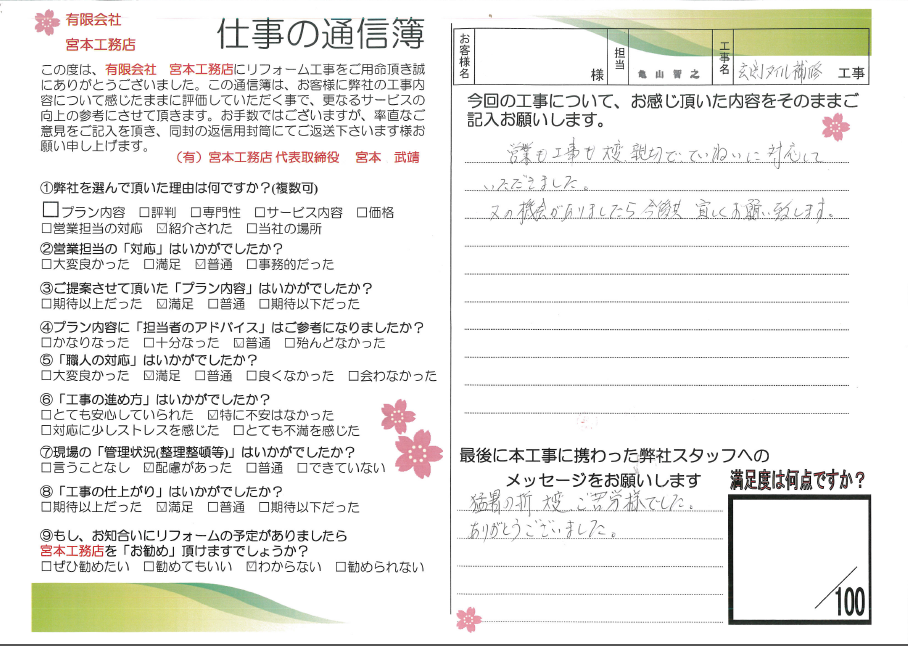 有限会社
宮本工務店
仕事の通信簿
この度は、有限会社　宮本工務店にリフォーム工事をご用命頂き誠
にありがとうございました。この通信簿は、お客様に弊社の工事内
容について感じたままに評価していただく事で、更なるサービスの
向上の参考にさせて頂きます。お手数ではございますが、率直なご
意見をご記入を頂き、同封の返信用封筒にてご返送下さいます様お
願い申し上げます。
（有）宮本工務店 代表取締役　宮本　武靖
①弊社を選んで頂いた理由は何ですか？(複数可)
□プラン内容　□評判　□専門性　□サービス内容　□価格
□営業担当の対応　☑紹介された　□当社の場所
②営業担当の「対応」はいかがでしたか？
□大変良かった　□満足　☑普通　□事務的だった
③ご提案させて頂いた「プラン内容」はいかがでしたか？
□期待以上だった　☑満足　□普通　□期待以下だった
④プラン内容に「担当者のアドバイス」はご参考になりましたか？
□かなりなった　□十分なった　☑普通　□殆んどなかった
⑤「職人の対応」はいかがでしたか？
□大変良かった　☑満足　□普通　□良くなかった　□会わなかった
⑥「工事の進め方」はいかがでしたか？
□とても安心していられた　☑特に不安はなかった
□対応に少しストレスを感じた　□とても不満を感じた
⑦現場の「管理状況(整理整頓等)」はいかがでしたか？
□言うことなし　☑配慮があった　□普通　□できていない
⑧「工事の仕上がり」はいかがでしたか？
□期待以上だった　☑満足　□普通　□期待以下だった
⑨もし、お知合いにリフォームの予定がありましたら
宮本工務店を「お勧め」頂けますでしょうか？
□ぜひ勧めたい　□勧めてもいい　☑わからない　□勧められない
お客様名　様　担当　亀山智之　工事名　玄関タイル補修　工事
今回の工事について、お感じ頂いた内容をそのままご
記入お願いします。
営業も工事も大変親切でていねいに対応して
いただきました。
又の機会がありましたら今後共宜しくお願い致します。
最後に本工事に携わった弊社スタッフへの
メッセージをお願いします
猛暑の折 大変 ご苦労様でした。
ありがとうございました。
満足度は何点ですか？
／100